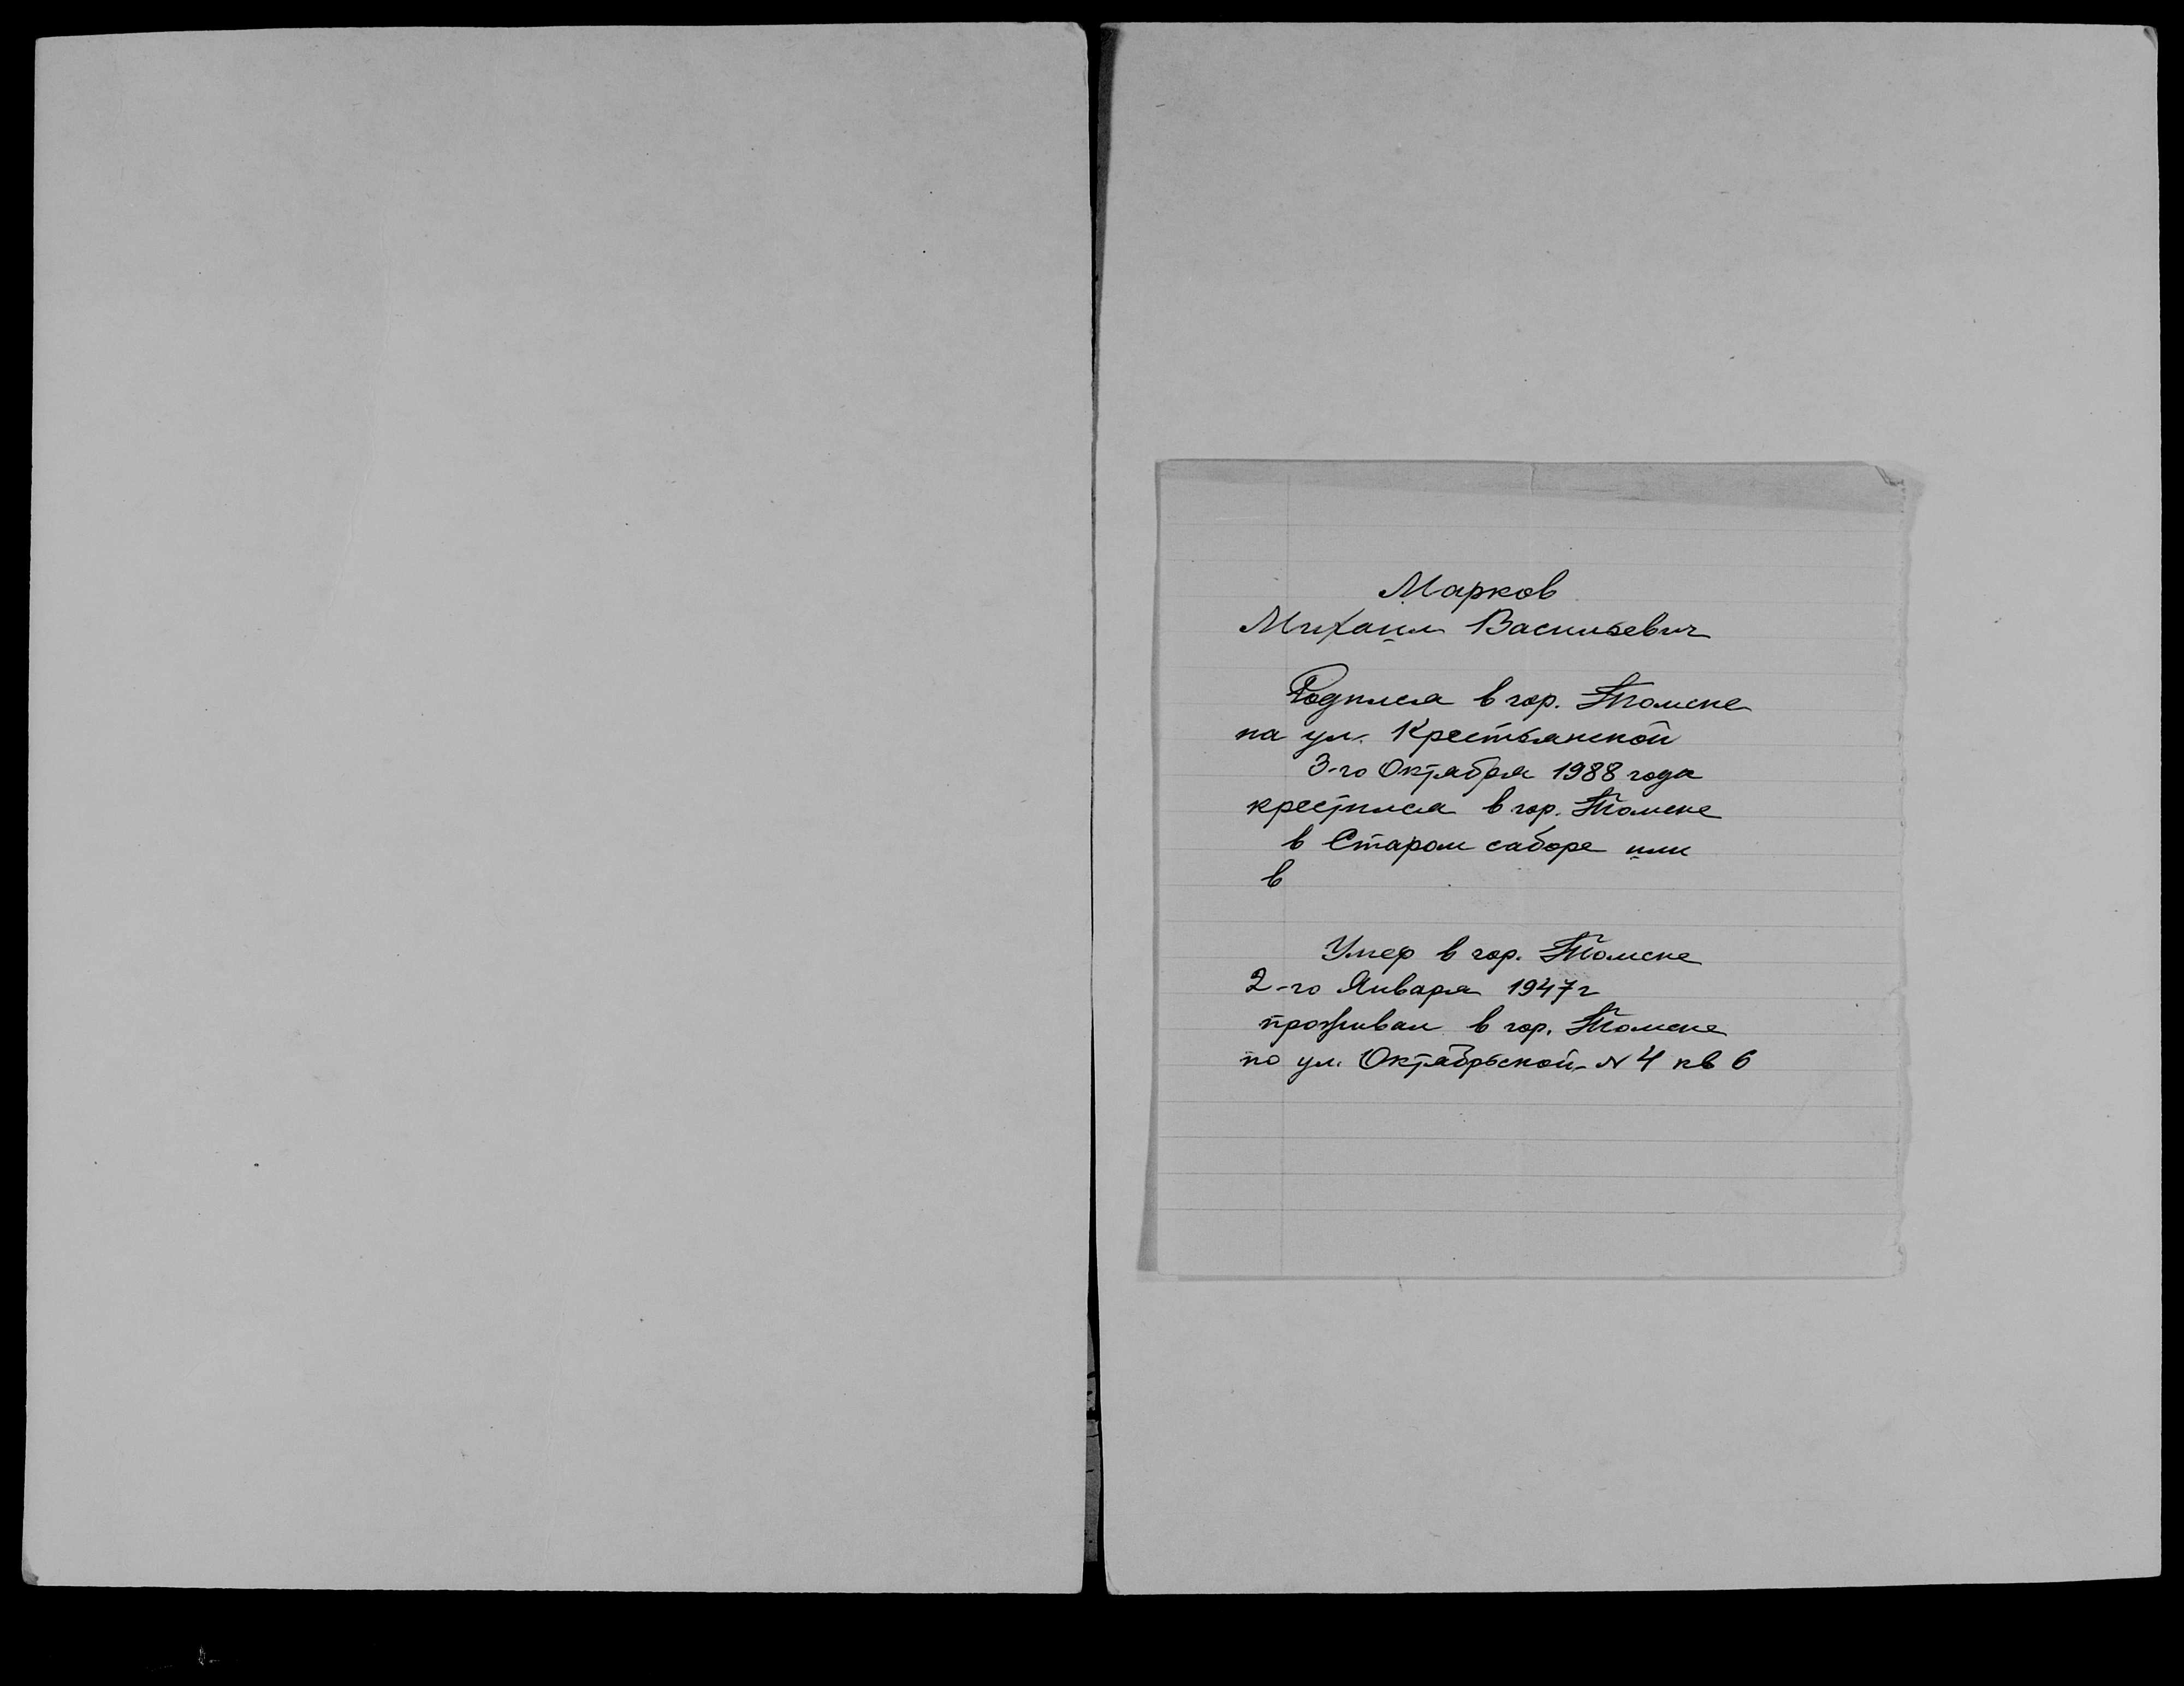 Марков
Михаил Васильевич
Родился в гор. Томске
на ул. Крестьянской
3-го Октября 1988 года
крестился в гор. Томске
в Старом саборе или
в
Умер в гор. Томске
2-го Января 1947г
проживал в гор. Томске
по ул. Октябрьской - N 4 кв 6